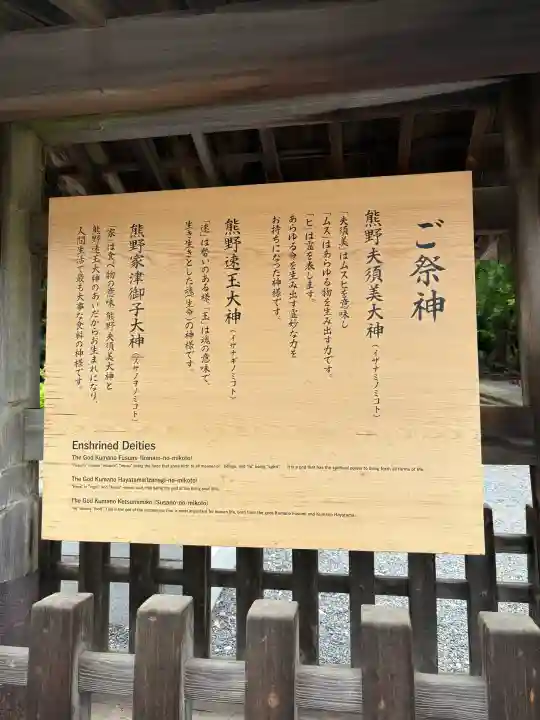 ご祭神
熊野夫須美大神(イザナミノミコト)
「夫須美」はムスヒを意味し
「ムス」はあらゆる物を生み出す力です。
「ヒ」は霊を表します。
あらゆる命を生み出す霊妙な力を
お持ちになった神様です。
熊野速玉大神(イザナギノミコト)
「速」は勢いのある様、「玉」は魂の意味で、
生き生きとした魂(生命)の神様です。
熊野家津御子大神(スサノヲノミコト)
「家」は食べ物の意味、熊野夫須美大神と
熊野速玉大神のあいだからお生まれになり、
人間生活で最も大事な食料の神様です。
Enshrined Deities
The God Kumano Fusumi (Izanami-no-mikoto)
beings, and "hi" being "spirit". It is a god that has the spiritual power to bring forth all forms of life.
The God Kumano Hayatama(Izanagi-no-mikoto)
The God Kumano Ketsumimiko (Susano-no-mikoto)
important for human life, born from the gods Kumano Fusumi and Kumano Hayatama.